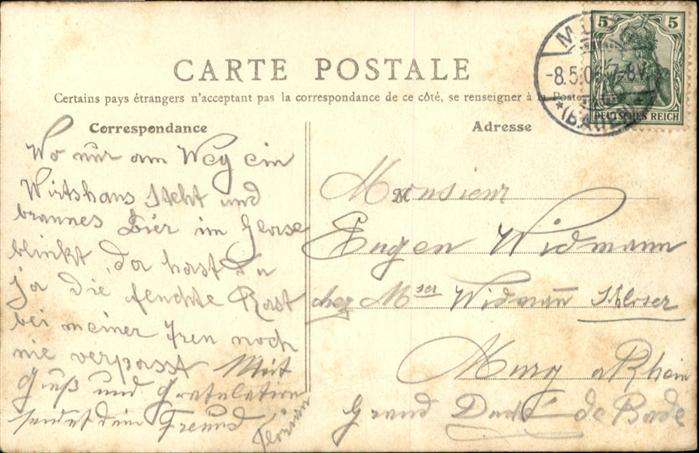 CARTE POSTALE
Certains pays étrangers n'acceptant pas la correspondance de ce côté, se renseigner à la Poste
Correspondance
Adresse
5 5
DEUTSCHES REICH
-8.5.06. 7-8V
*(BADEN)
Wo nur am Weg ein
Wirtshaus steht und
braunes Bier im Glase
blinkt, da hast du
ja die feuchte Rast
bei meiner noch
nie verpasst Mit
Gruß und Gratulation
sendet dein Freund
Florian
Monsieur
Eugen Widmann
chez Mser Widmann Schloser
Murg a Rhein
Grand Duché de Bade